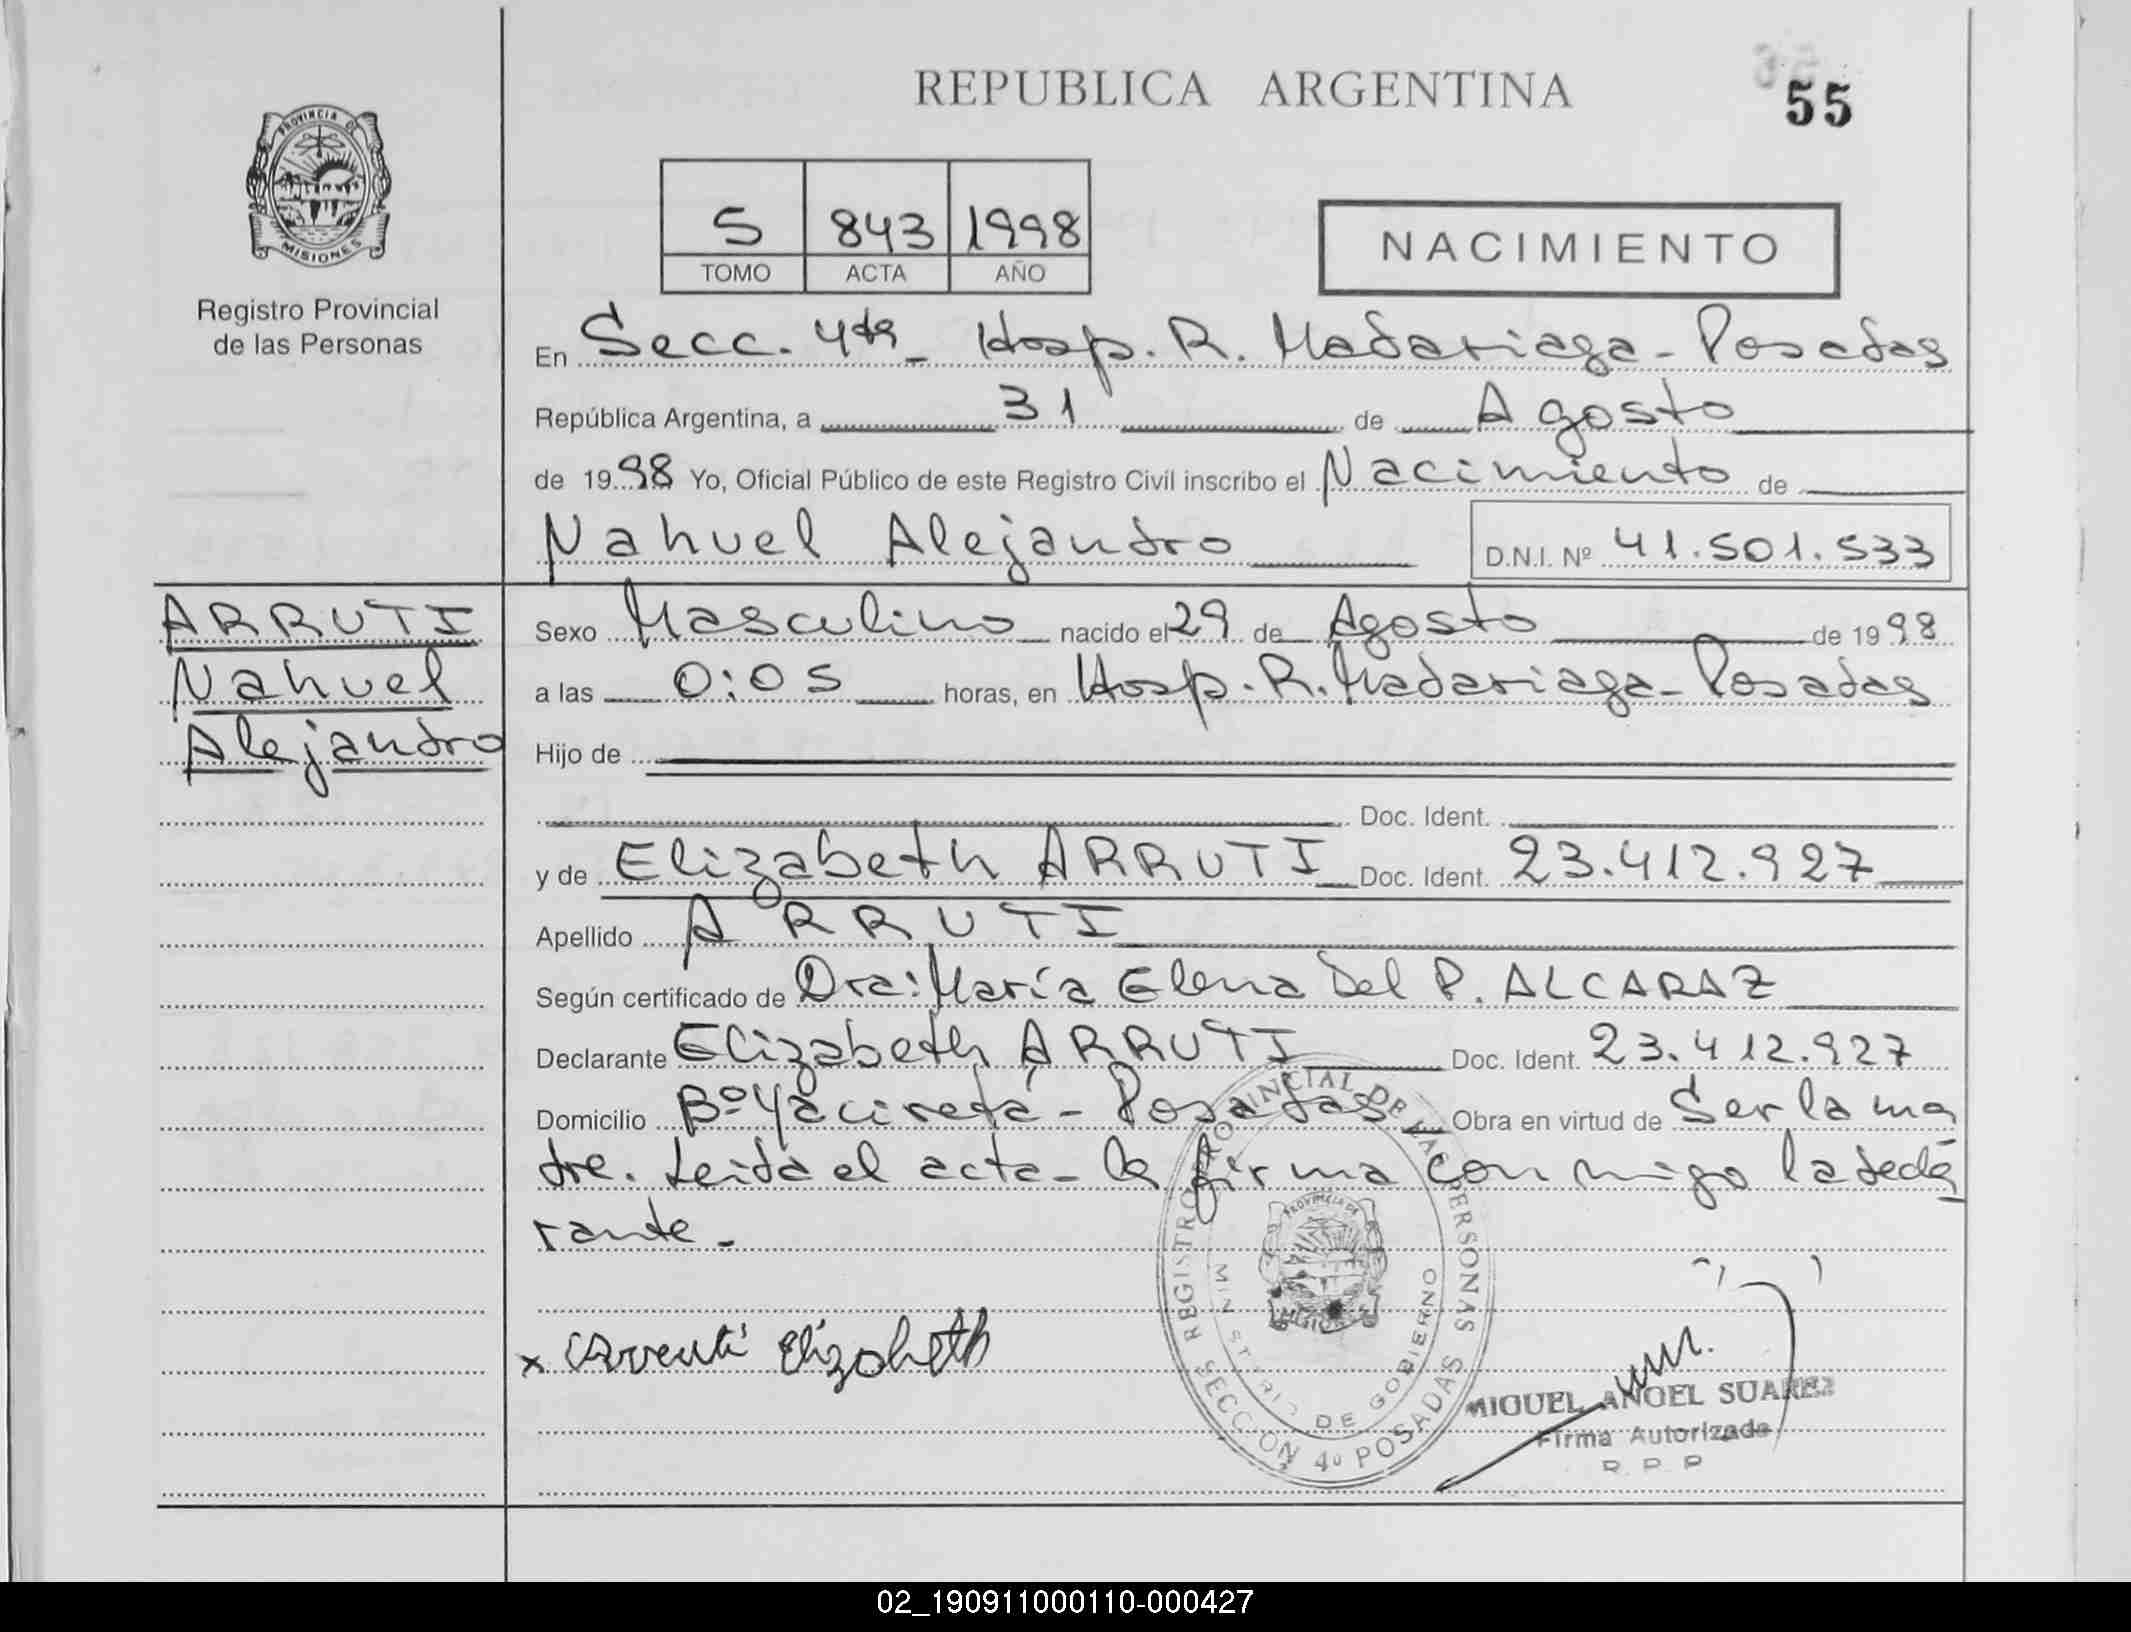 REPUBLICA ARGENTINA
55
PROVINCIA DE
MISIONES
Registro Provincial
de las Personas
5 843 1998
TOMO ACTA AÑO
NACIMIENTO
En Secc. 4ta - Hosp. R. Madariaga - Posadas
República Argentina, a 31 de Agosto
de 1998 Yo, Oficial Público de este Registro Civil inscribo el Nacimiento de
Nahuel Alejandro D.N.I. Nº 41.501.533
ARRUTI
Nahuel
Alejandro
Sexo Masculino nacido el 29 de Agosto de 1998
a las 0:05 horas, en Hosp. R. Madariaga - Posadas
Hijo de
Doc. Ident.
y de Elizabeth ARRUTI Doc. Ident. 23.412.927
Apellido ARRUTI
Según certificado de Dra: María Elena Del P. ALCARAZ
Declarante Elizabeth ARRUTI Doc. Ident. 23.412.927
Domicilio Bº Yacireta - Posadas Obra en virtud de Ser la ma
dre. Leida el acta - la firma con migo la decla
rante -
REGISTRO PROVINCIAL DE LAS PERSONAS
MINISTERIO DE GOBIERNO
SECCION 4º POSADAS
x Arruti Elizabeth
MIGUEL ANGEL SUAREZ
Firma Autorizada
R P P
02_190911000110-000427